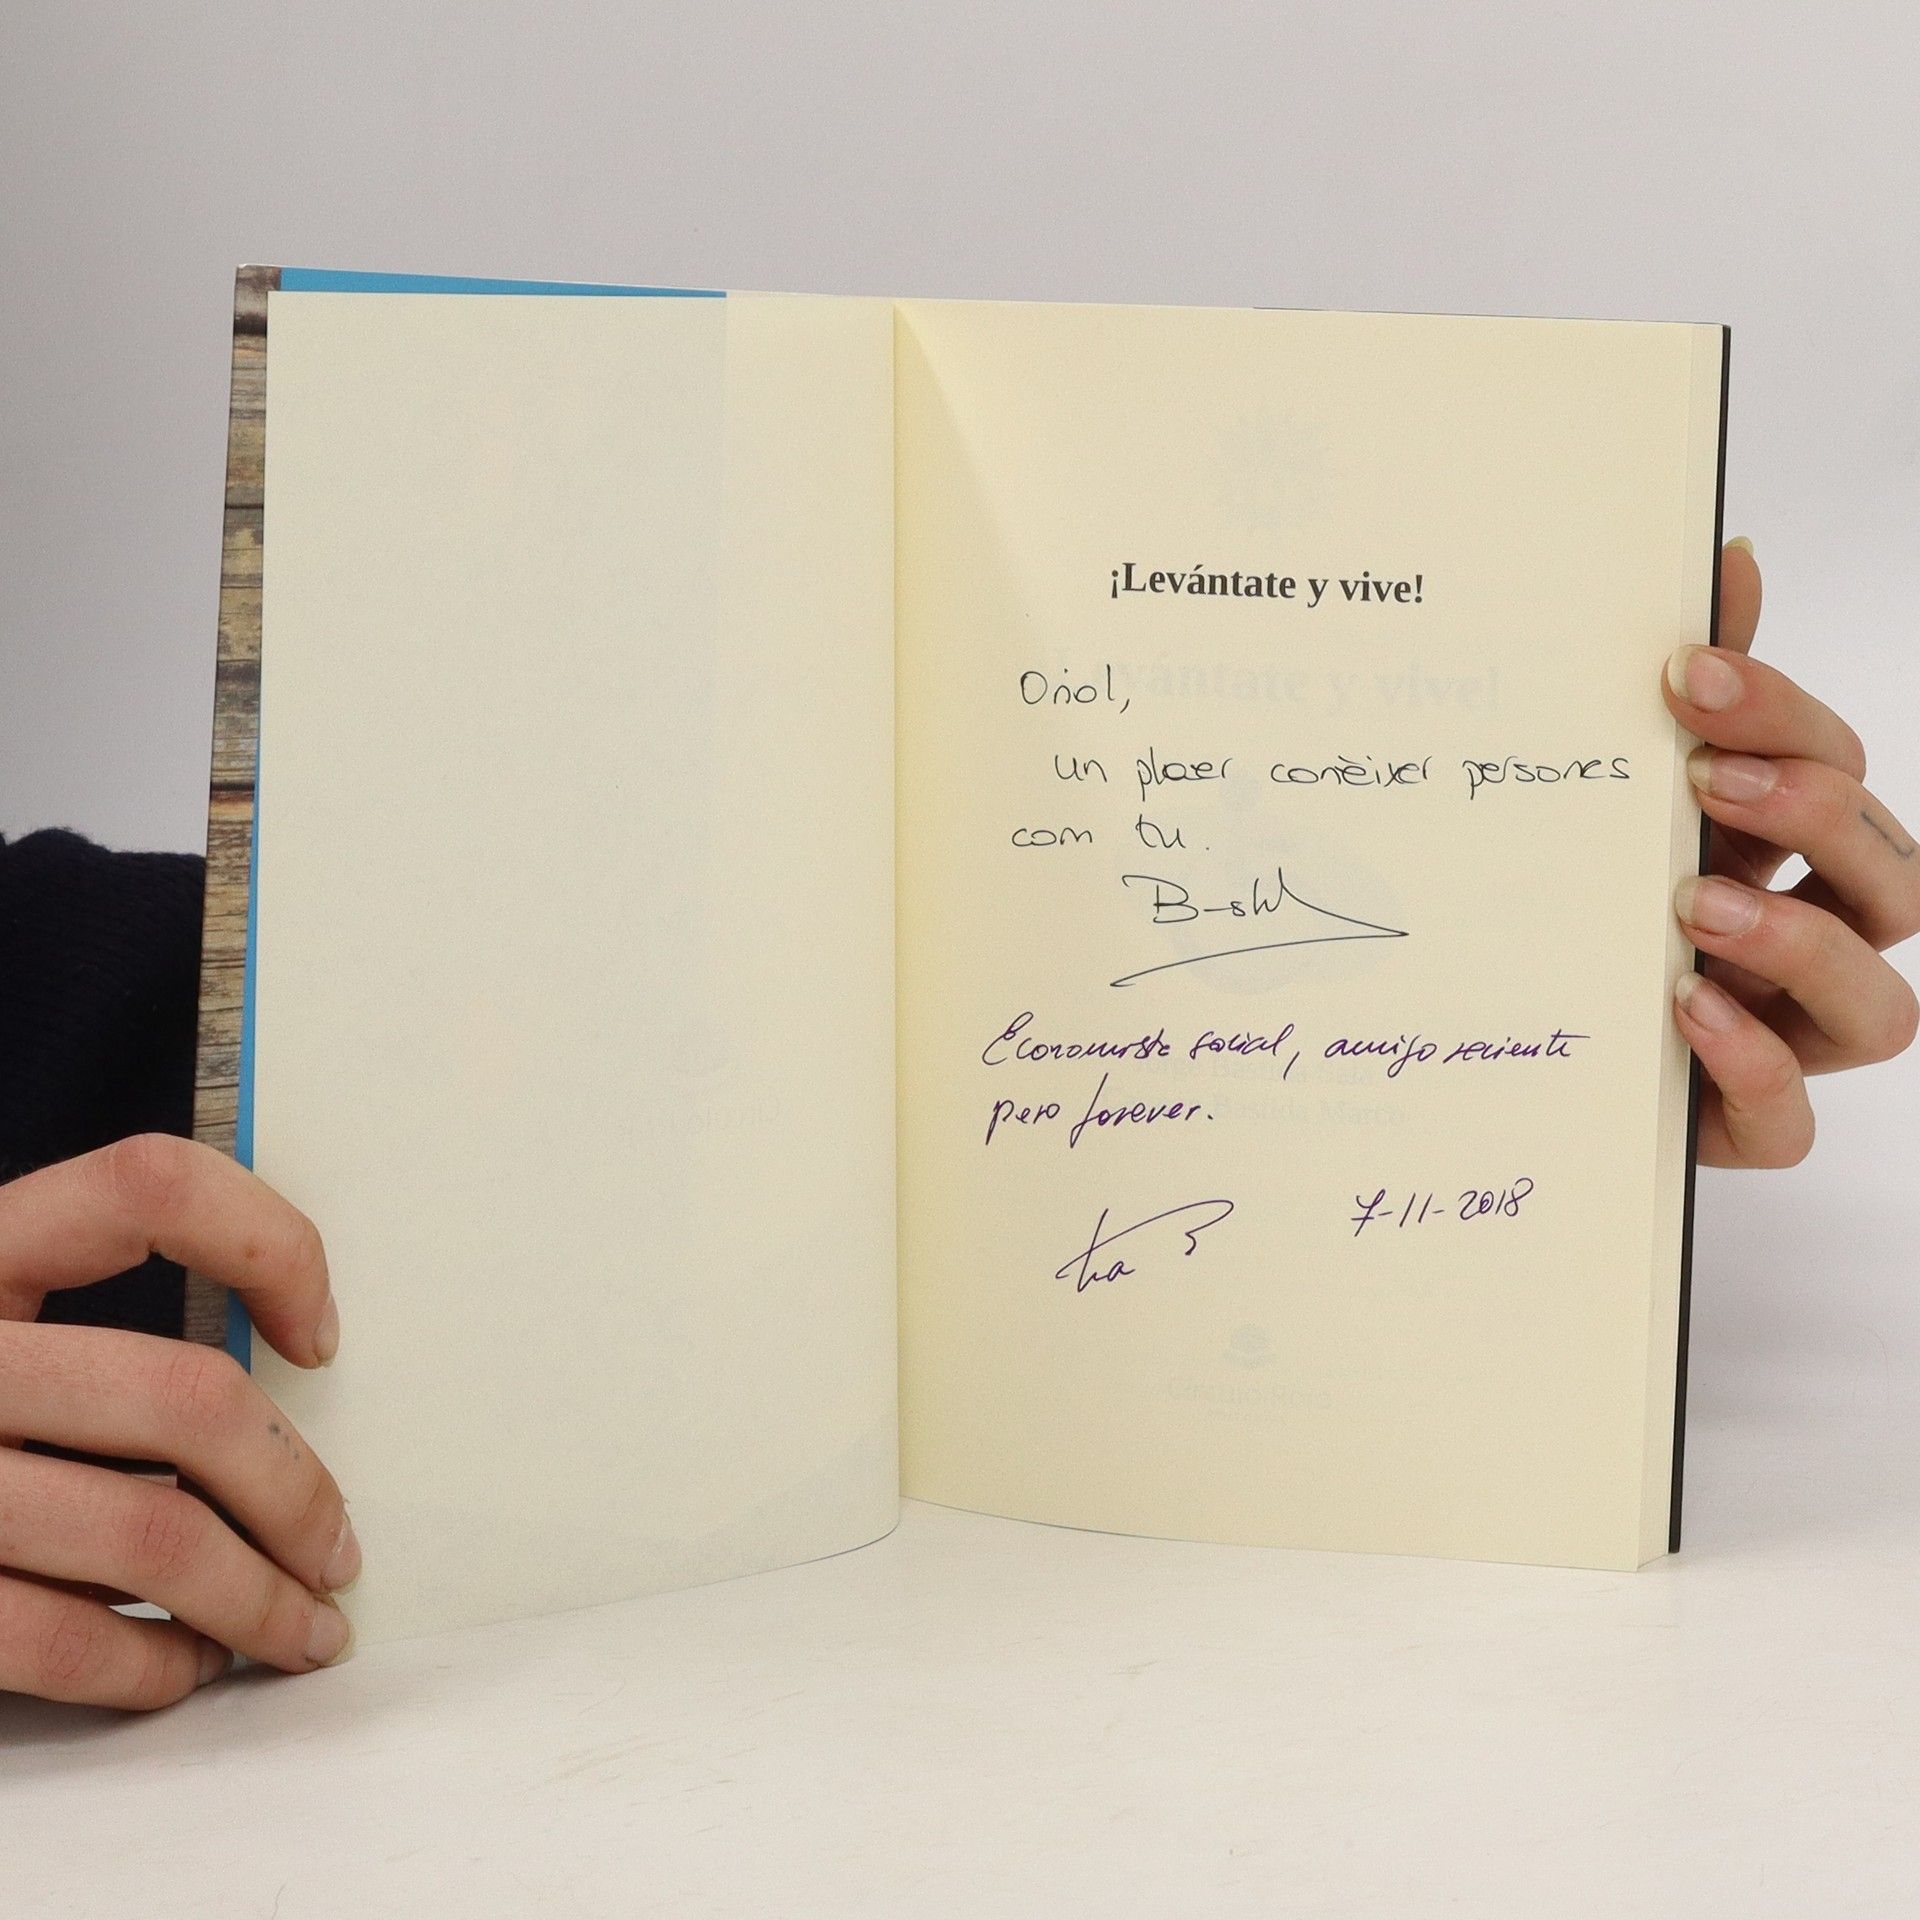 ¡Levántate y vive!
Oriol,
un plaer conèixer persones
com tu.
Economista social, amigo reciente
pero forever.
7-11-2018